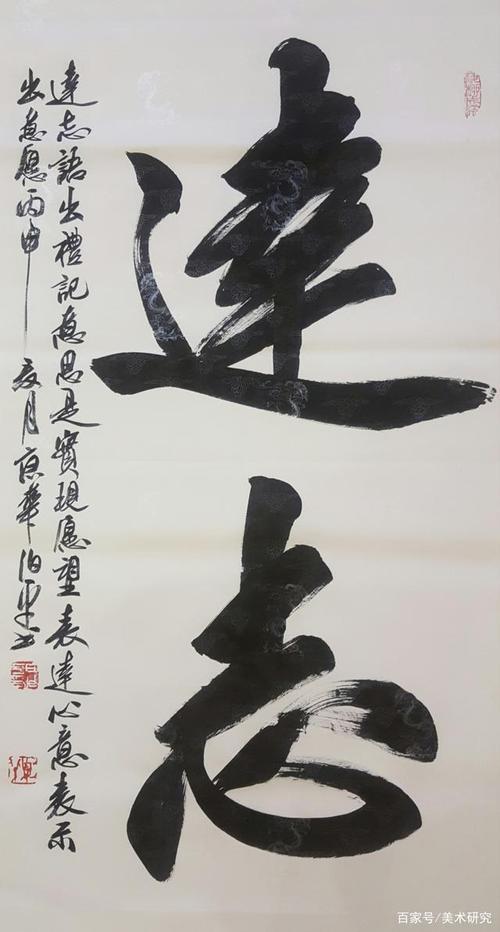 達志
達志語出禮記意思是實現愿望表達心意表示
出意愿丙申夏月京華伯平书
百家号/美术研究